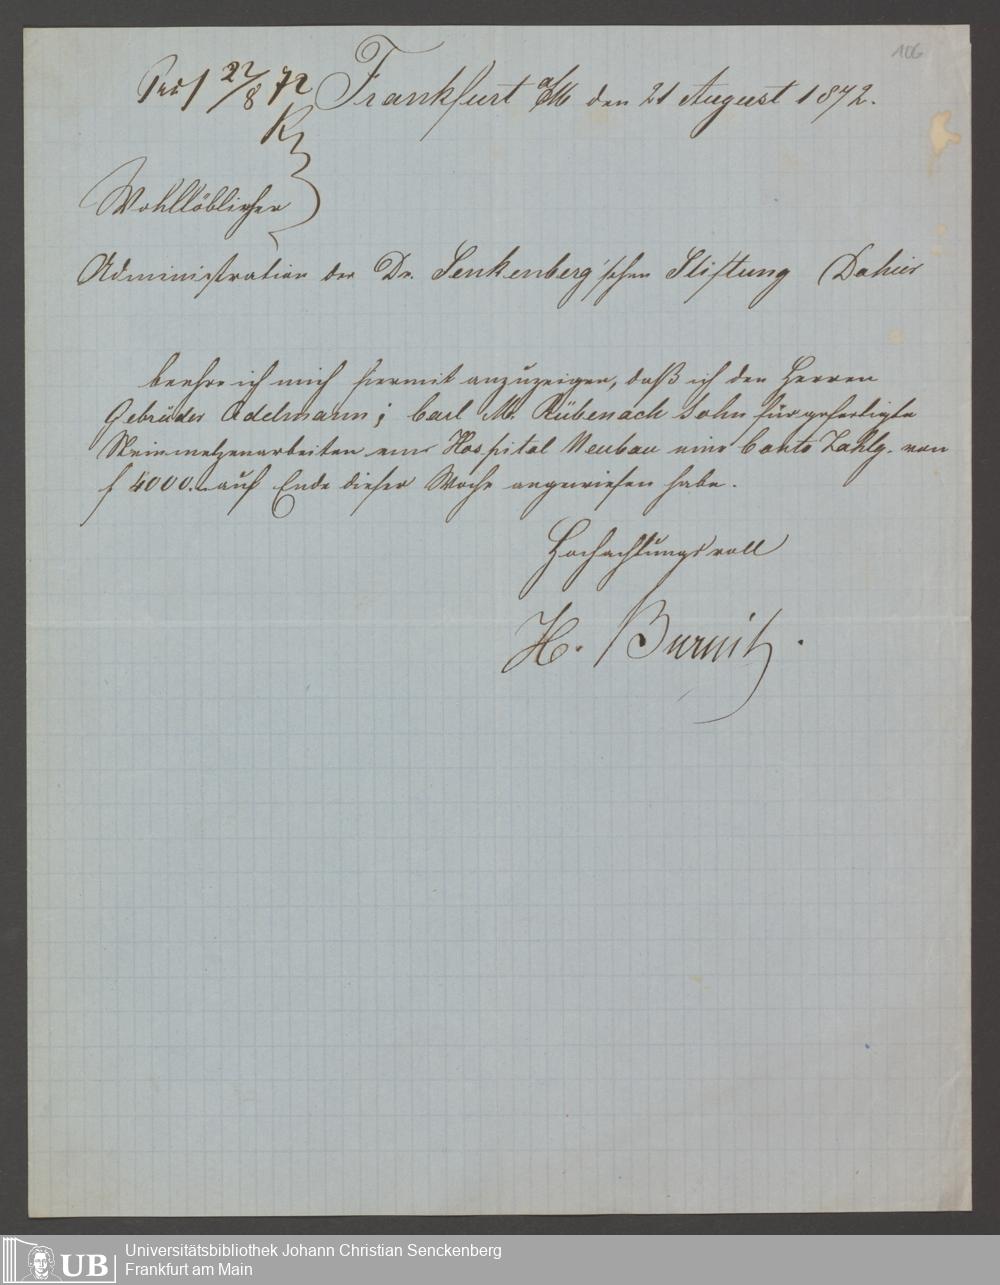 106
22/8 72
Frankfurt a/M den 21 August 1872.
Wohllöblicher
Administration der Dr. Senkenberg'schen Stiftung Dahier
beehre ich mich hiermit anzuzeigen, daß ich den Herren
Gebrüder Adelmann; Carl M. Rübenach Sohn für gefertigte
Steinmetzenarbeiten am Hospital Neubau eine Conto Zahlg. von
f 4000.– auf Ende dieser Woche angewiesen habe.
Hochachtungsvoll
H. Burnitz.
UB
Universitätsbibliothek Johann Christian Senckenberg
Frankfurt am Main